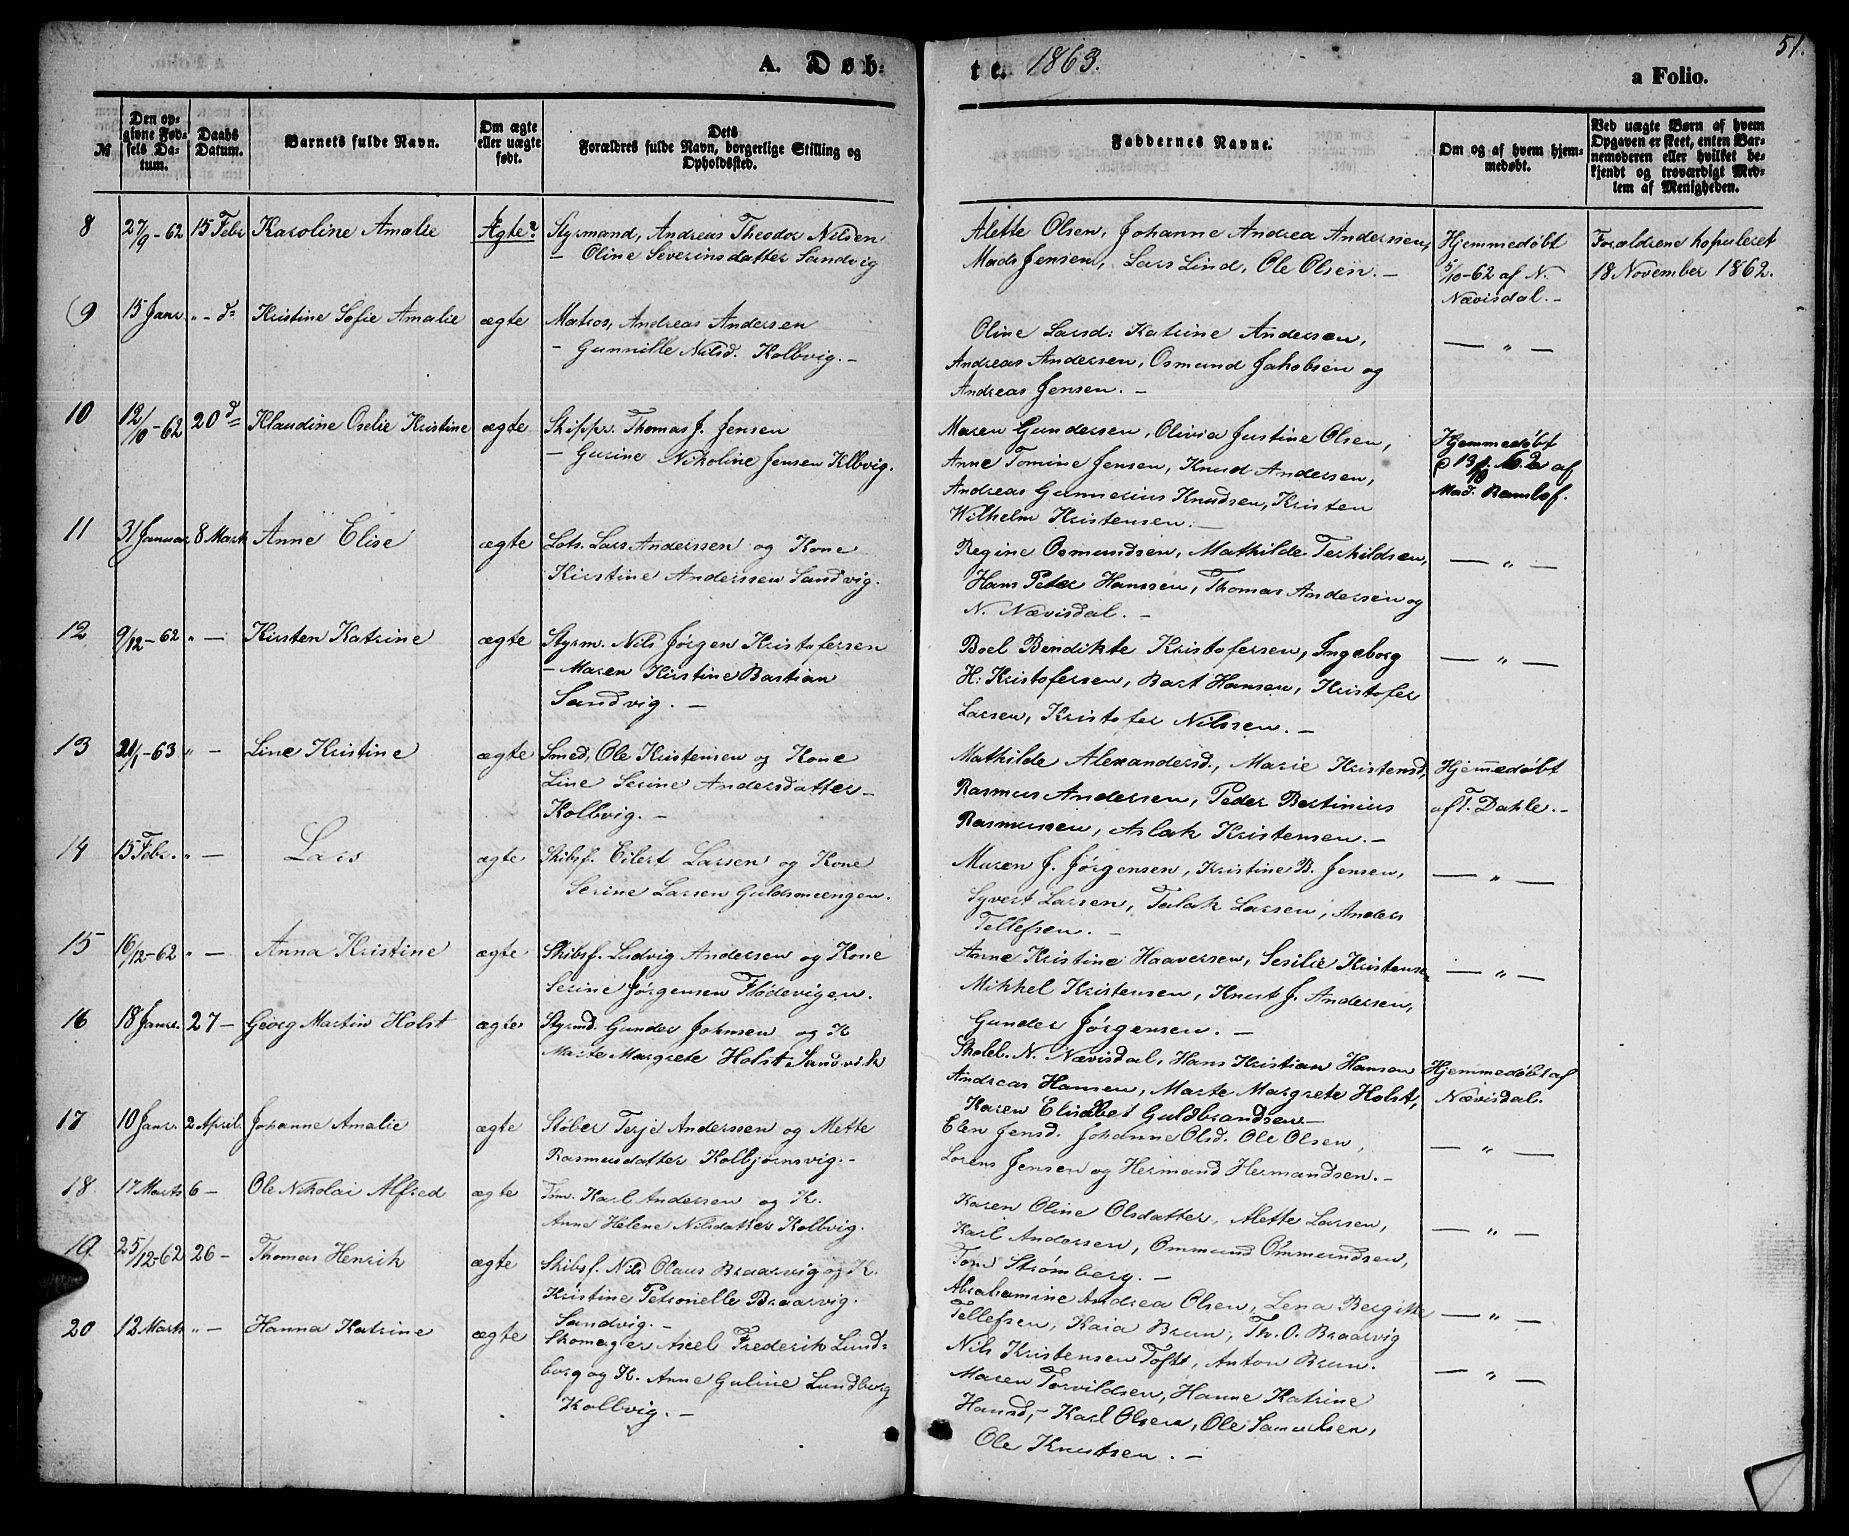 A. Døb-
te. 1863.
a Folio.
51.
№
Den op-
givne Fød-
sels Da-
tum.
Daabs
Datum.
Barnets fulde Navn.
Om ægte
eller uægte
født.
Dets
Forældres fulde Navn, borgerlige Stilling og
Opholdssted.
Faddernes Navne.
Om og af hvem hjem-
medøbt.
Ved uægte Børn af hvem
Opgaven er skeet, enten Bar-
nemoderen eller hvilket be-
kjendt og troværdigt Med-
lem af Menigheden.
8 27/9-62 15 Febr Karoline Amalie Ægte? Styrmand, Andreas Theodor Nilsen
- Oline Severinsdatter Sandvig
Alette Olsen, Johanne Andrea Anderssen,
Mads Jensen, Lars Lind, Ole Olsen. -
Hjemmedøbt
5/10-62 af N.
Nævisdal. -
Forældrene kopuleret
18 November 1862.
(9 15 Janr. " - d= Kristine Sofie Amalie ægte Matros, Andreas Andersen
- Gunnille Nilsd. Kolbvig. -
Oline Larsd: Katrine Andersen,
Andreas Andersen, Osmund Jakobsen og
Andreas Jensen. -
— " —
10 12/10-62 20 d= Klaudine Oselie Kristine ægte Skippr. Thomas J. Jensen
- Gurine Nikoline Jensen Klbvig.
Maren Gundersen, Olivia Justine Olsen,
Anne Tomine Jensen, Knud Andersen,
Andreas Gunnerius Knudsen, Kristen
Wilhelm Kristensen. -
Hjemmedøbt
af
Mad.
11 31 Januar 8 Marts Anne Elise ægte Lots. Lars Anderssen og Kone
Kirstine Anderssen Sandvig.
Regine Osmundsen, Mathilde Terkildsen,
Hans Peter Hanssen, Thomas Andersen og
N. Nævisdal. -
— " —
12 9/12-62 " — Kirsten Katrine ægte Styrm. Nils Jørgen Kristofersen
- Maren Kirstine Bastian
Sandvig. -
Boel Bendikte Kristofersen, Ingeborg
H: Kristofersen, Bart Hansen, Kristofer
Larsen, Kristofer Nilssen. -
— " —
13 21/1-63 " — Line Kristine ægte Smed, Ole Kristensen og Kone
Line Serine Andersdatter -
Kolbvig. -
Mathilde Alexandersd., Marie Kristensd,
Rasmus Andersen, Peder Bertinius
Rasmussen, Aslak Kristensen. -
Hjemedøbt
af T. Dahle. -
14 15 Febr. " — Lars ægte Skibsf. Eilert Larsen og Kone
Serine Larsen Guldsmengen.
Maren J. Jørgensen, Kristine B. Jensen,
Syvert Larsen, Talak Larsen, Anders
Tellefsen. -
— " —
15 16/12-62 " — Anna Kristine ægte Skibsf. Ludvig Andersen og Kone
Serine Jørgensen Flødevigen.
Anne Kristine Haaversen, Sesilie Kristensen
Mikkel Kristensen, Knut J. Andersen,
Gunder Jørgensen. -
— " —
16 18 Janr. 27 - Georg Martin Holst ægte Styrmd. Gunder Johnsen og K
Marte Margrete Holst Sandvik
Skolel. N. Nævisdal, Hans Kristian Hansen
Andreas Hansen, Marte Margrete Holst,
Karen Elisabet Guldbrandsen -
Hjemmedøbt af
Nævisdal.
17 10 Janr. 2 April. Johanne Amalie ægte Støber Terje Anderssen og Mette
Rasmusdatter Kolbjørnsvig. -
Elen Jensd. Johanne Olsd. Ole Olsen,
Lorens Jensen og Hermand Hermandsen. -
— " —
18 17 Marts 6 - Ole Nikolai Alfred ægte Tm. Karl Andersen og K.
Anne Helene Nilsdatter Kolbvig.
Karen Oline Olsdatter, Alette Larsen,
Karl Andersen, Ommund Ommundsen,
Tom Strømberg. -
— " —
19 25/12-62 26 - Thomas Henrik ægte Skibsf. Nils Olaus Braarvig og K.
Kristine Petronelle Braarvig.
Sandvig. -
Abrahamine Andrea Olsen, Lena Bergitte
Tellefsen, Kaia Brun, Th. O. Braarvig
Nils Kristensen Toft, Anton Brun.
— " —
20 12 Marts " — Hanna Katrine ægte Skomager Axel Frederik Lund-
borg og K. Anne Guline Lundborg
Kolbvig. -
Maren Torvildsen, Hanne Katrine
Hansd, - Karl Olsen, Ole Samuelsen,
Ole Knutsen. -
— " —